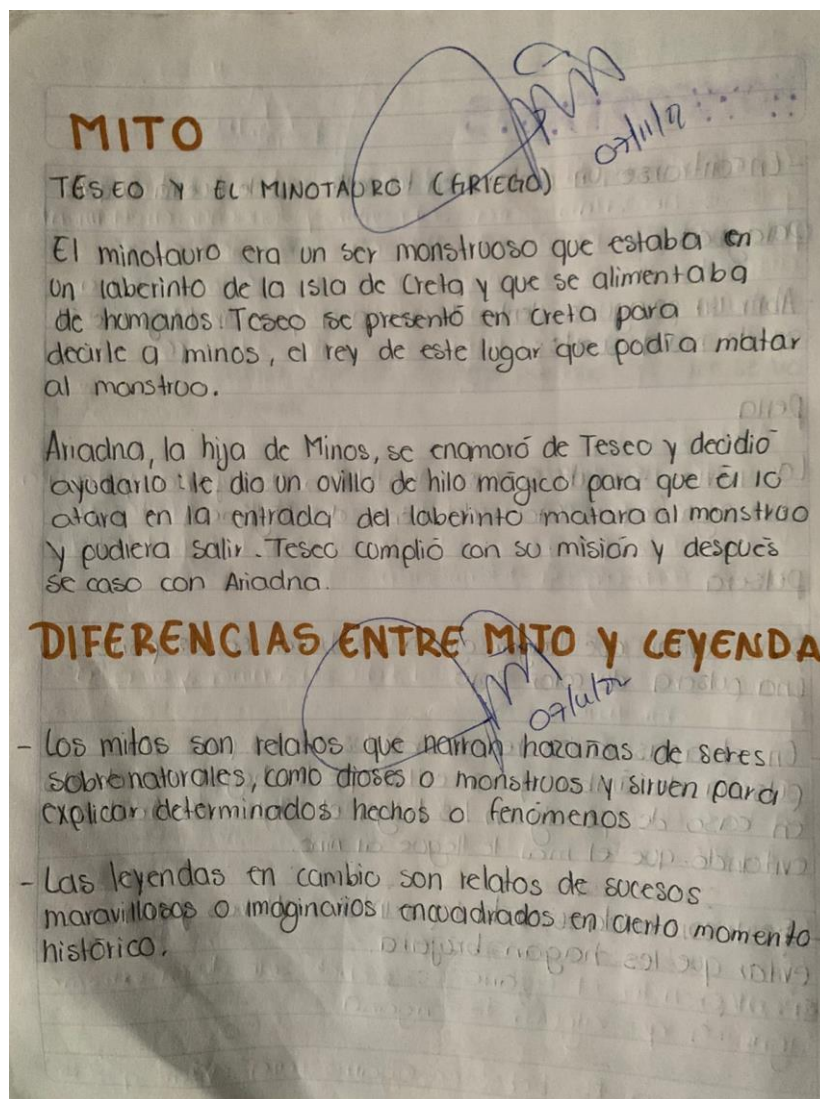 MITO
07/11/22
TESEO Y EL MINOTAURO (GRIEGO)
El minotauro era un ser monstruoso que estaba en
un laberinto de la isla de Creta y que se alimentaba
de humanos. Teseo se presentó en creta para
decirle a minos, el rey de este lugar que podía matar
al monstruo.
Ariadna, la hija de Minos, se enamoró de Teseo y decidio
ayudarlo: le dio un ovillo de hilo mágico para que él lo
atara en la entrada del laberinto matara al monstruo
y pudiera salir. Teseo complió con su misión y después
se caso con Ariadna.
DIFERENCIAS ENTRE MITO Y LEYENDA
07/11/22
- Los mitos son relatos que narran hazañas de seres
sobrenaturales, como dioses o monstruos y sirven para
explicar determinados hechos o fenómenos
- Las leyendas en cambio son relatos de sucesos
maravillosos o imaginarios encuadrados en cierto momento
histórico.